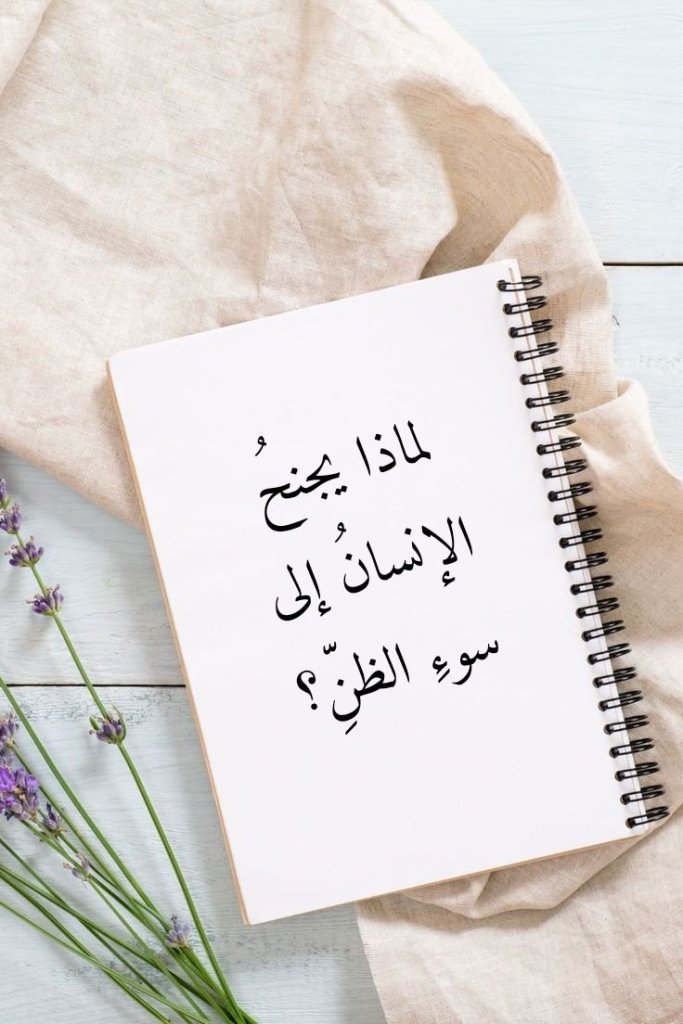 لماذا يجنحُ
الإنسانُ إلى
سوءِ الظنِّ؟